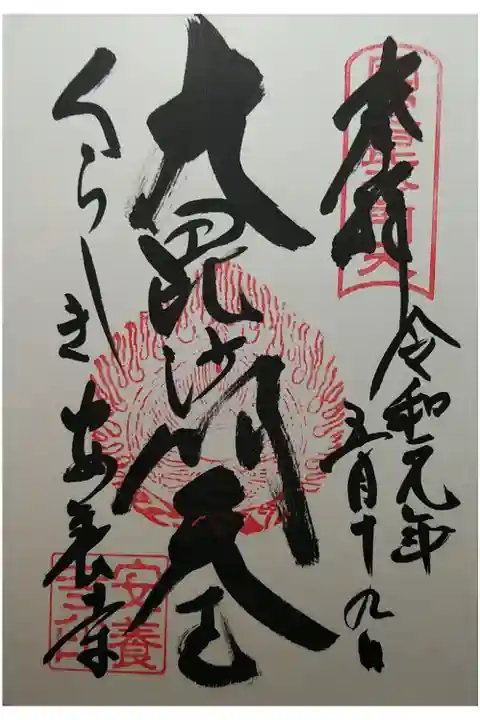 奉拝
令和元年
五月十九日
大毘沙門天王
くらしき
安養寺
安養